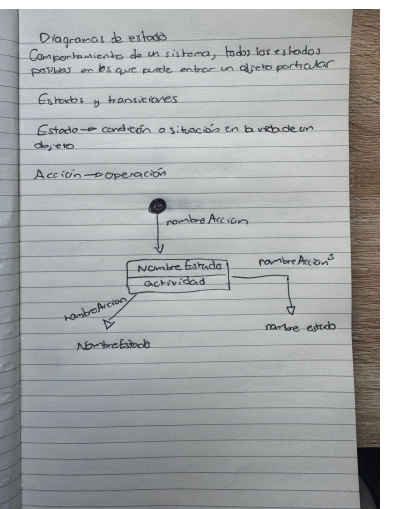 Diagramas de estado
Comportamiento de un sistema, todos los estados
posibles en los que puede entrar un objeto particular
Estados y transiciones
Estado → condición o situación en la vida de un
objeto
Acción → operación
nombre Acción
Nombre Estado
actividad
nombre Acción
nombre Acción
Nombre Estado
nombre estado